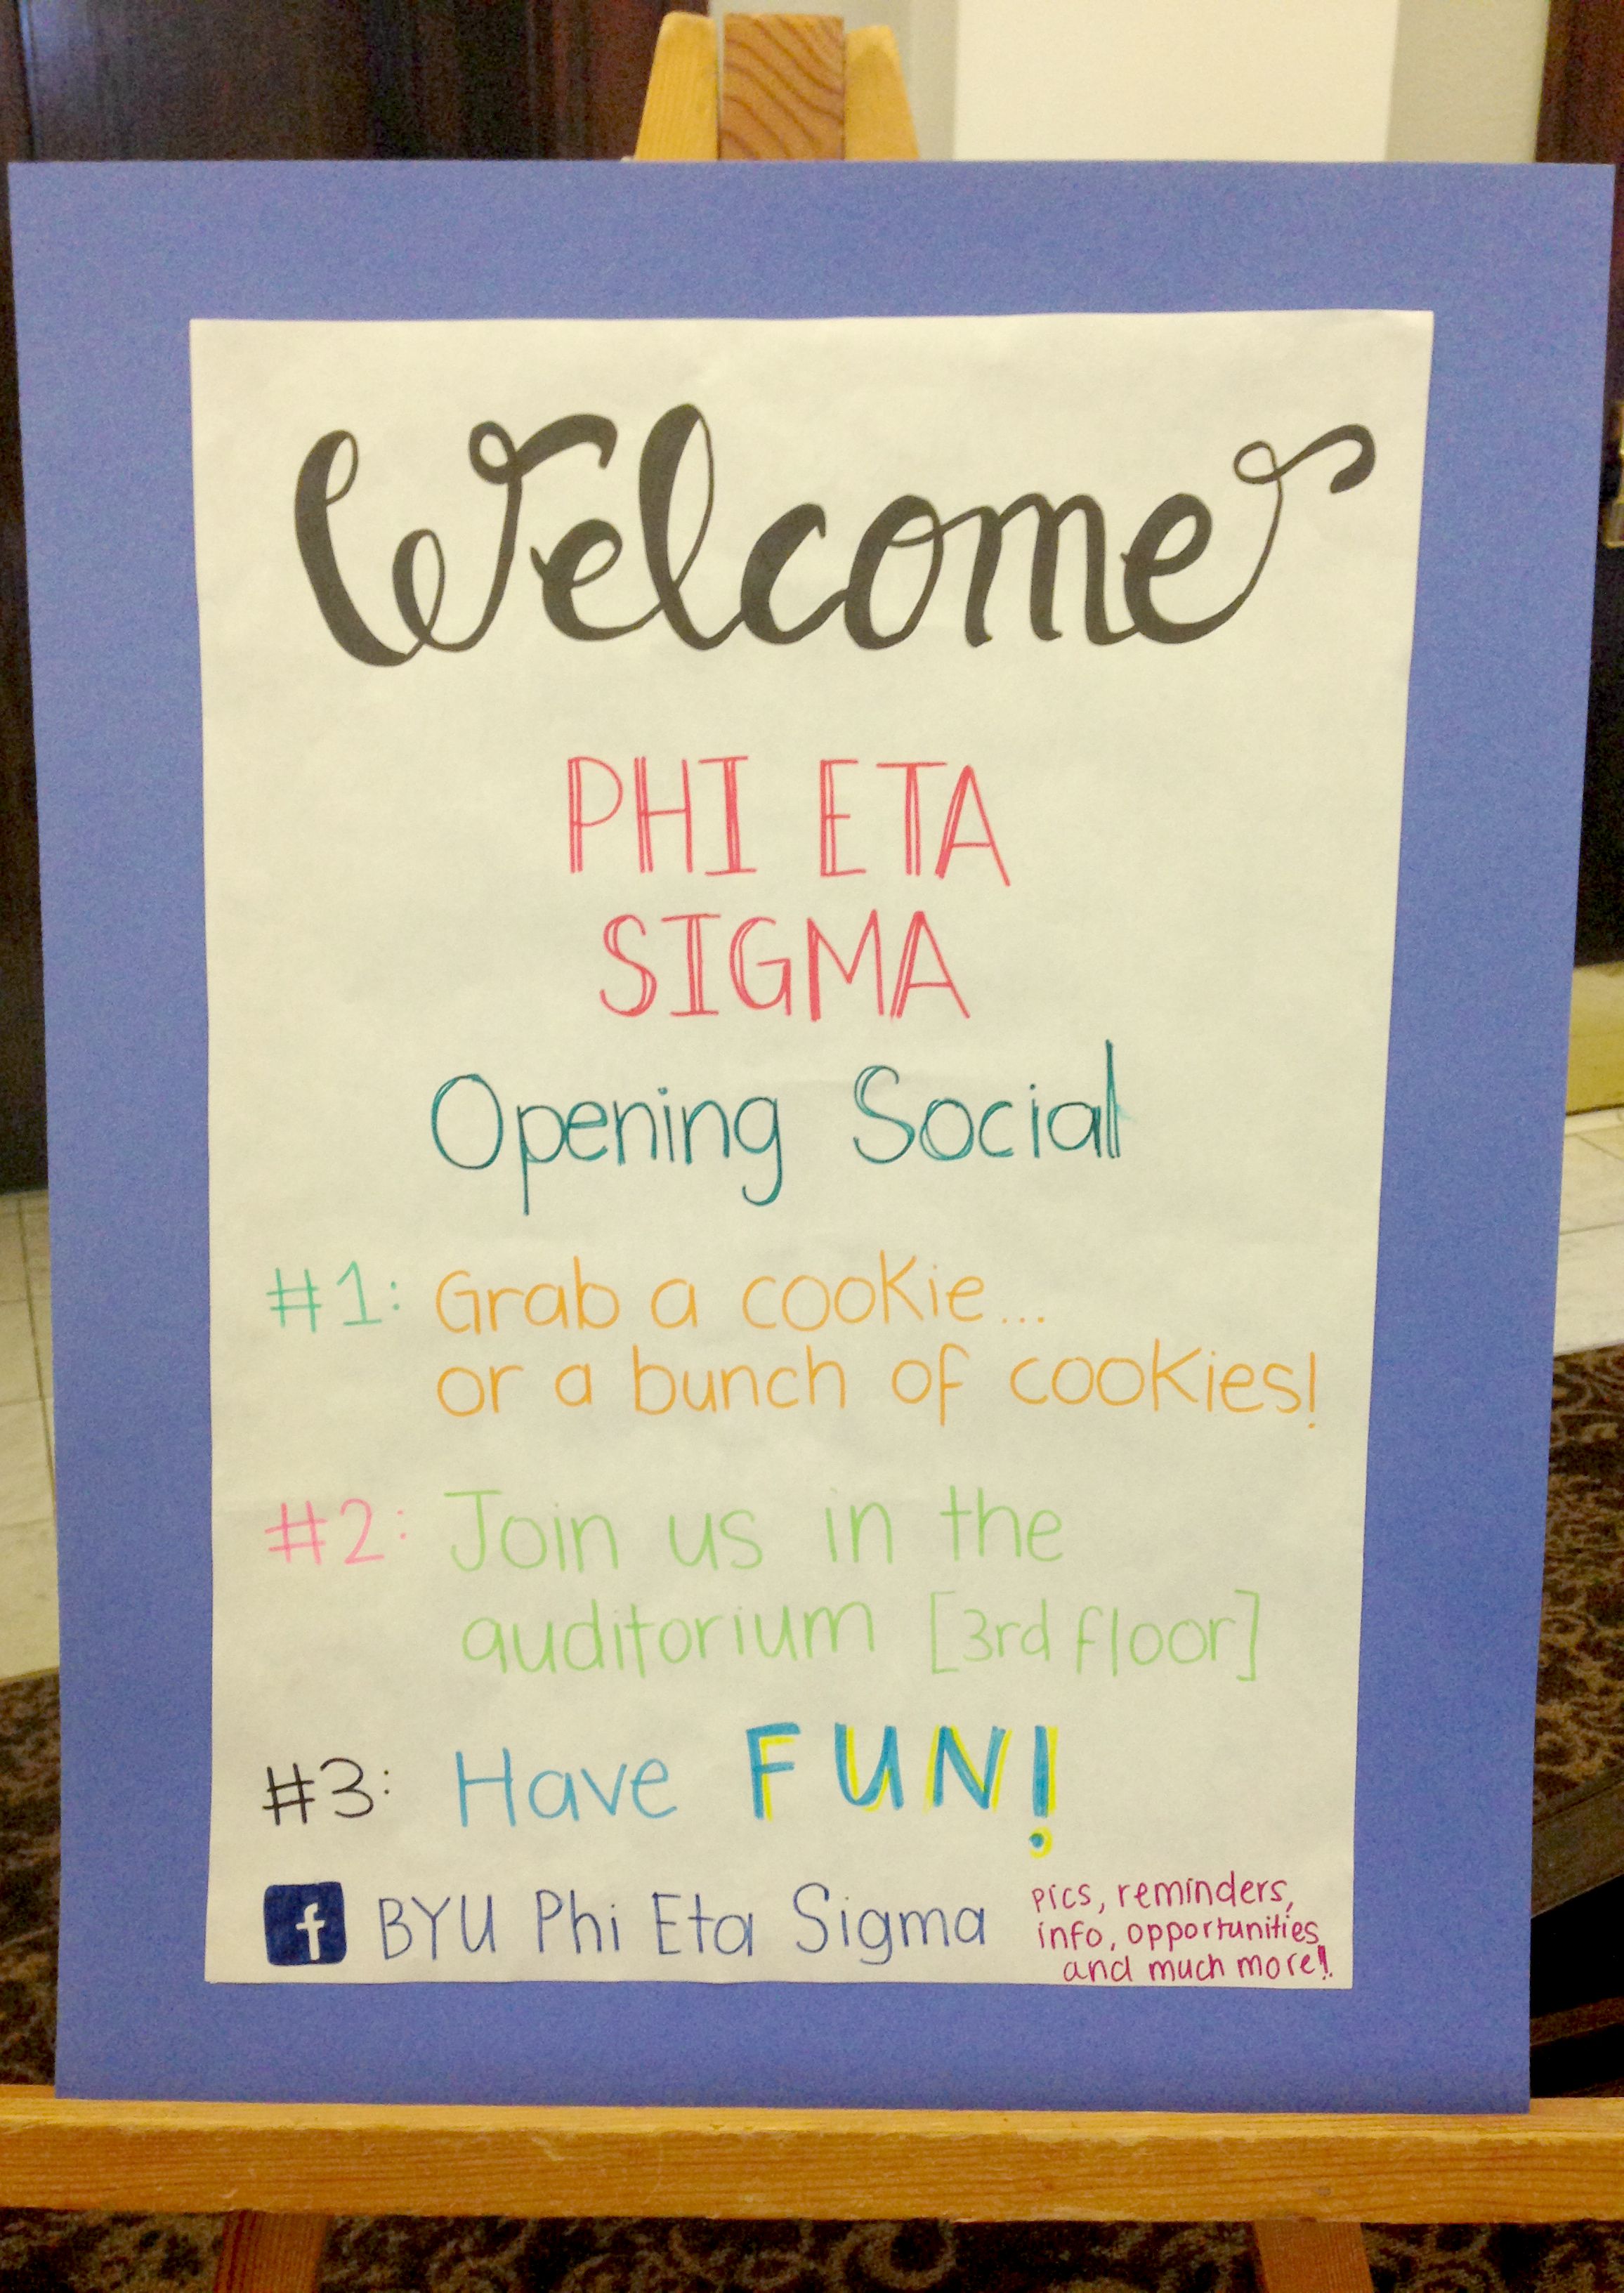 Welcome
PHI ETA
SIGMA
Opening Social
#1: Grab a cookie...
or a bunch of cookies!
#2: Join us in the
auditorium [3rd floor]
#3: Have FUN!
f BYU Phi Eta Sigma
pics, reminders,
info, opportunities
and much more!!